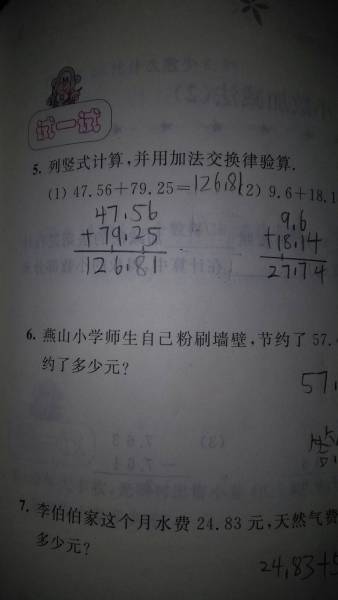 试一试
5. 列竖式计算,并用加法交换律验算.
(1) 47.56+79.25=126.81 (2) 9.6+18.1
47.56
+79.25
126.81
9.6
+18.14
27.74
6. 燕山小学师生自己粉刷墙壁,节约了 57.
约了多少元?
57.
7. 李伯伯家这个月水费 24.83 元,天然气费
多少元?
24.83+5